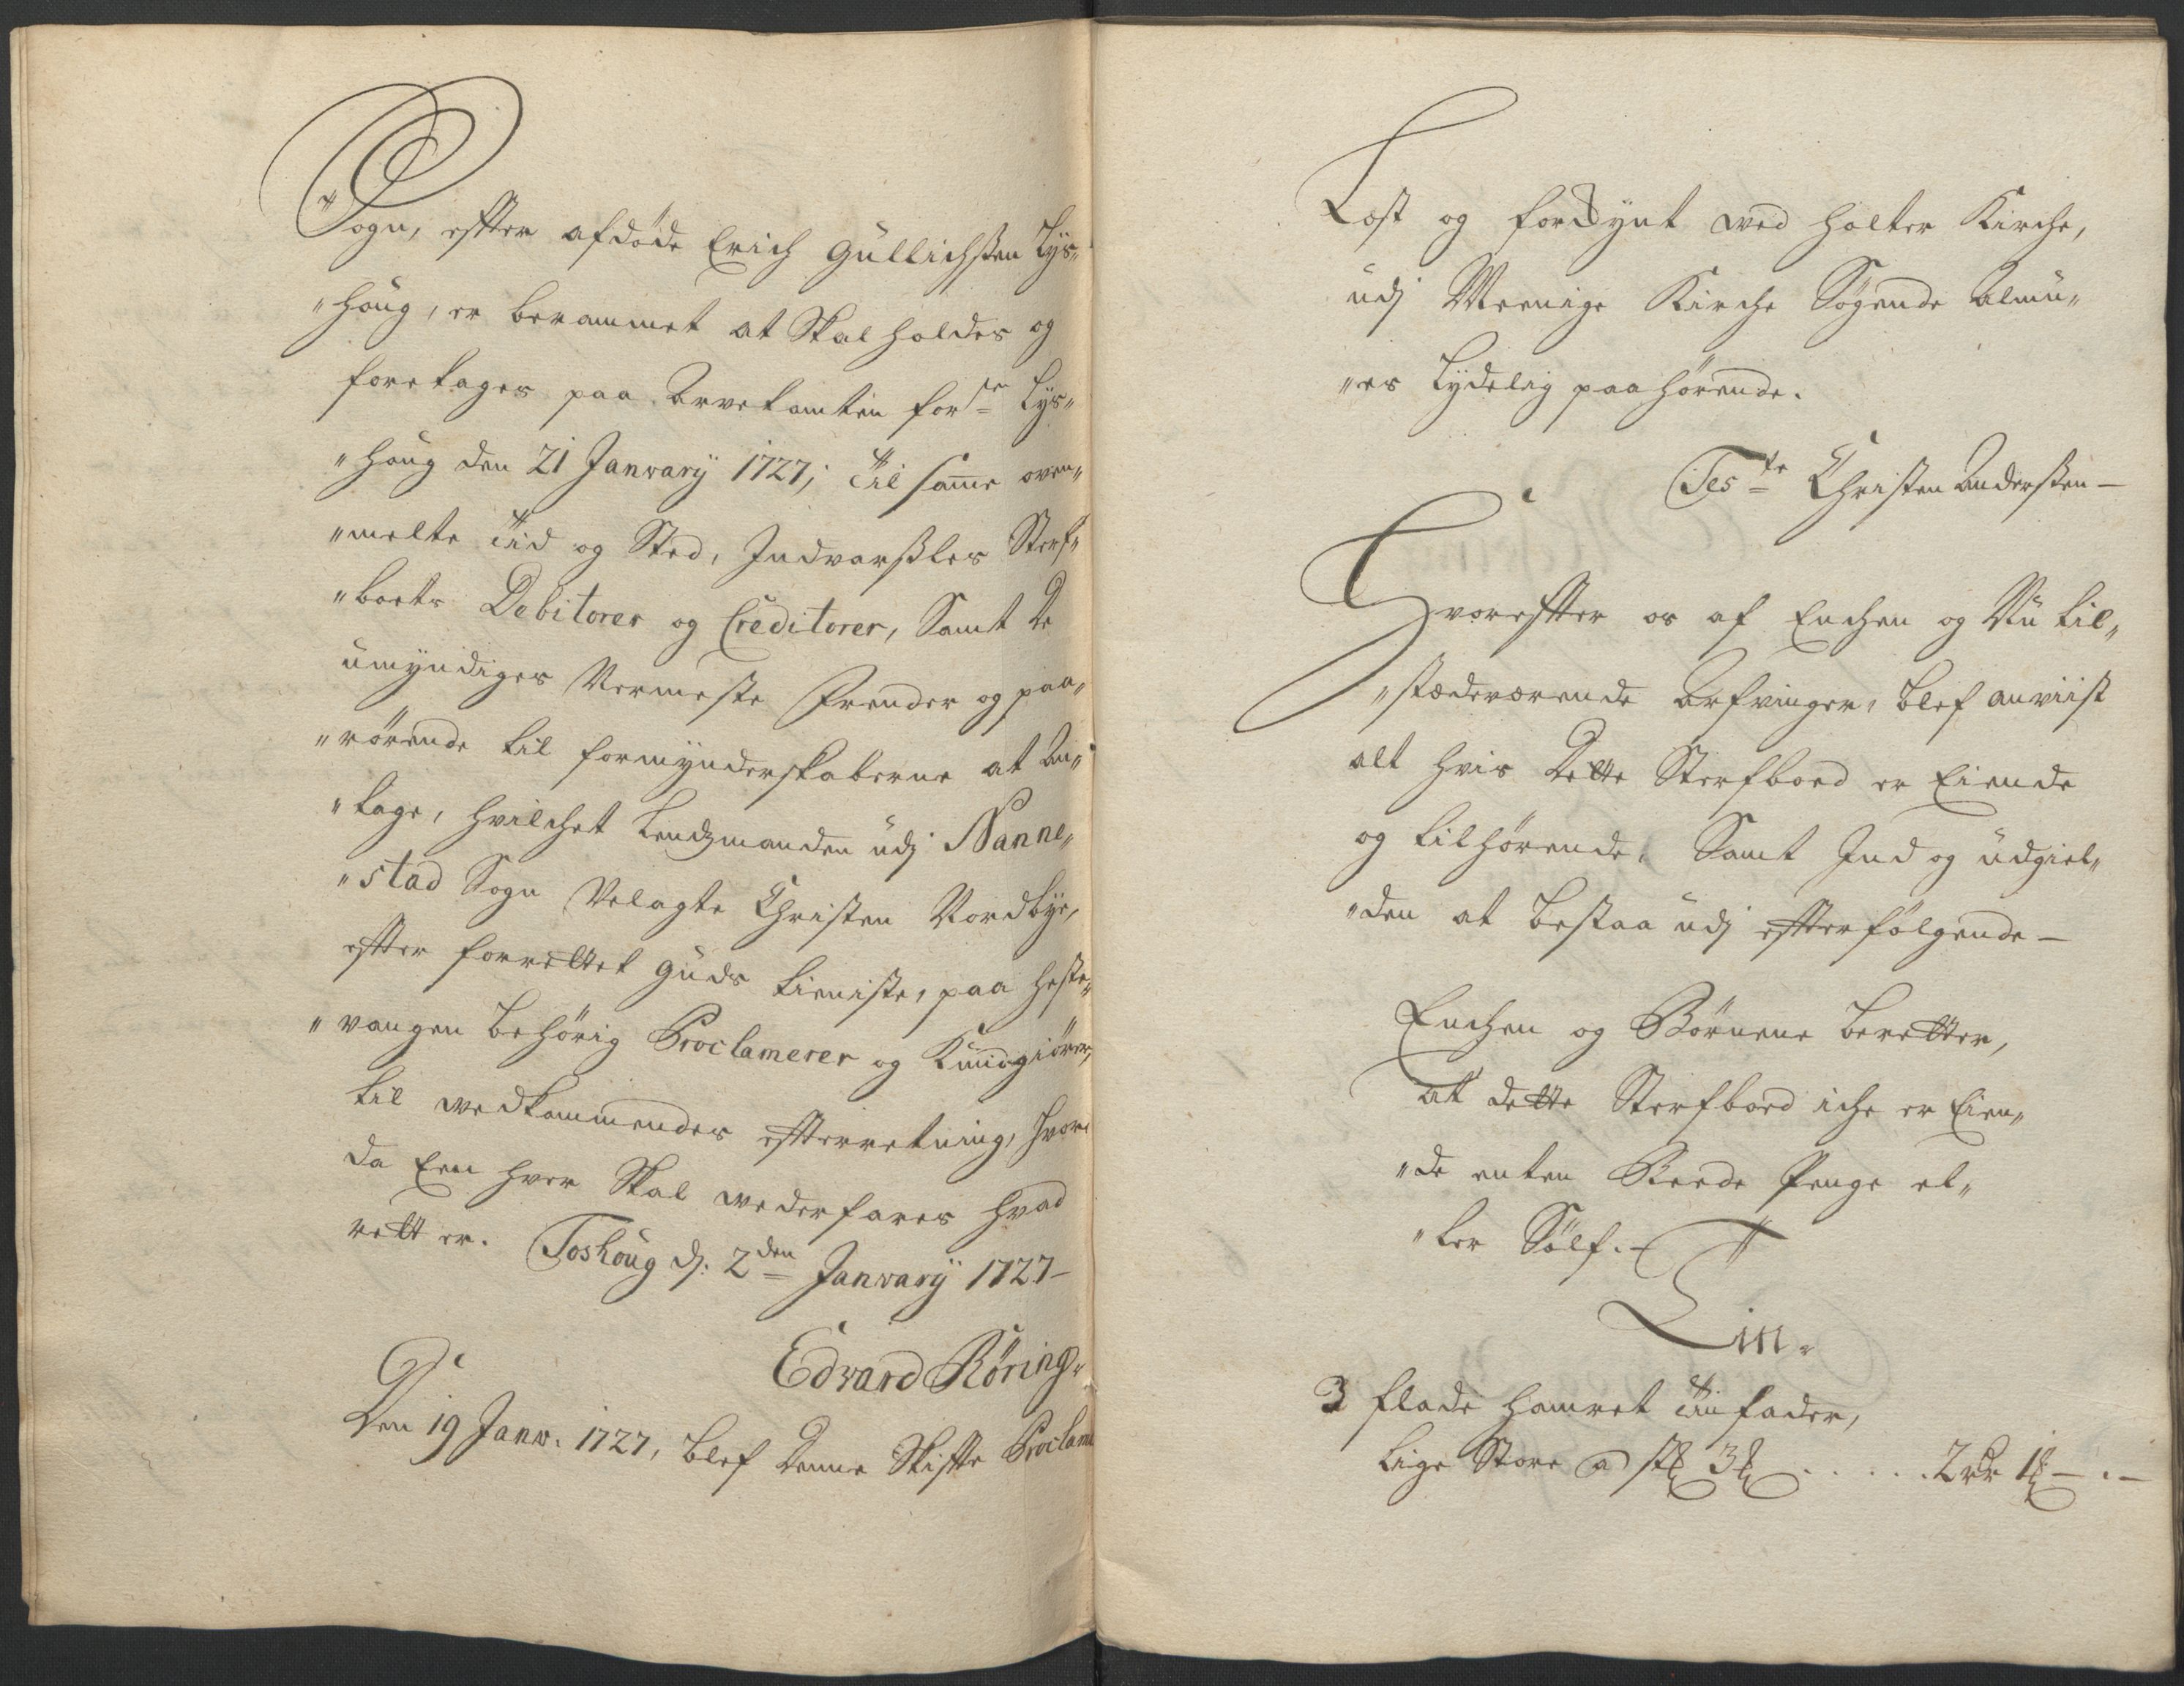 Sogn, efter afdöde Erich Gullichsßen Lÿs„
„houg, er berammet at Skal holdes og
foretages paa Arvetomten forne Lÿs„
„houg den 21 Janvarÿ 1727; Til samme oven„
„melte Tid og Sted, Indvarßles Sterf„
„boets Debitorer og Creditorer, Samt de
umÿndiges Nermeste Frender og paa„
„rörende til formÿnderskaberne at An„
„tage, hvilchet Lendzmanden udj Nanne„
„stad Sogn Velagte Christen Nordbÿe,
efter forrettet Guds tieniste, paa Heste„
„vangen behörig Proclamerer og Kundgiörer,
til wedkommendes efterretning, hvor
da Een hver Skal wederfares hvad
rett er. Toshoug d: 2den Janvarÿ 1727–
Edvard Röring.
Den 19 Janv. 1727, blef denne Skifte Proclam
Læst og forkÿnt wed Holter Kirche,
udj Meenige Kirche Sögende Almu„
„es Lÿdelig paahörende.
Teste Christen Andersßen–
Hvorefter os af Enchen og Nu til„
„stædeværende Arfvinger, blef anviist
alt hvis dette Sterfboed er Eiende
og tilhörende, Samt Ind og udgiel„
„den at bestaa udj efterfölgende–
Enchen og Börnene beretter,
at dette Sterfboed iche er Eien„
„de enten Reede Penge el„
„ler Sölf.–
Tin.
3 flade hamret Tin fader,
lige Store a st 3 ..... 2 rdr 1 –.–